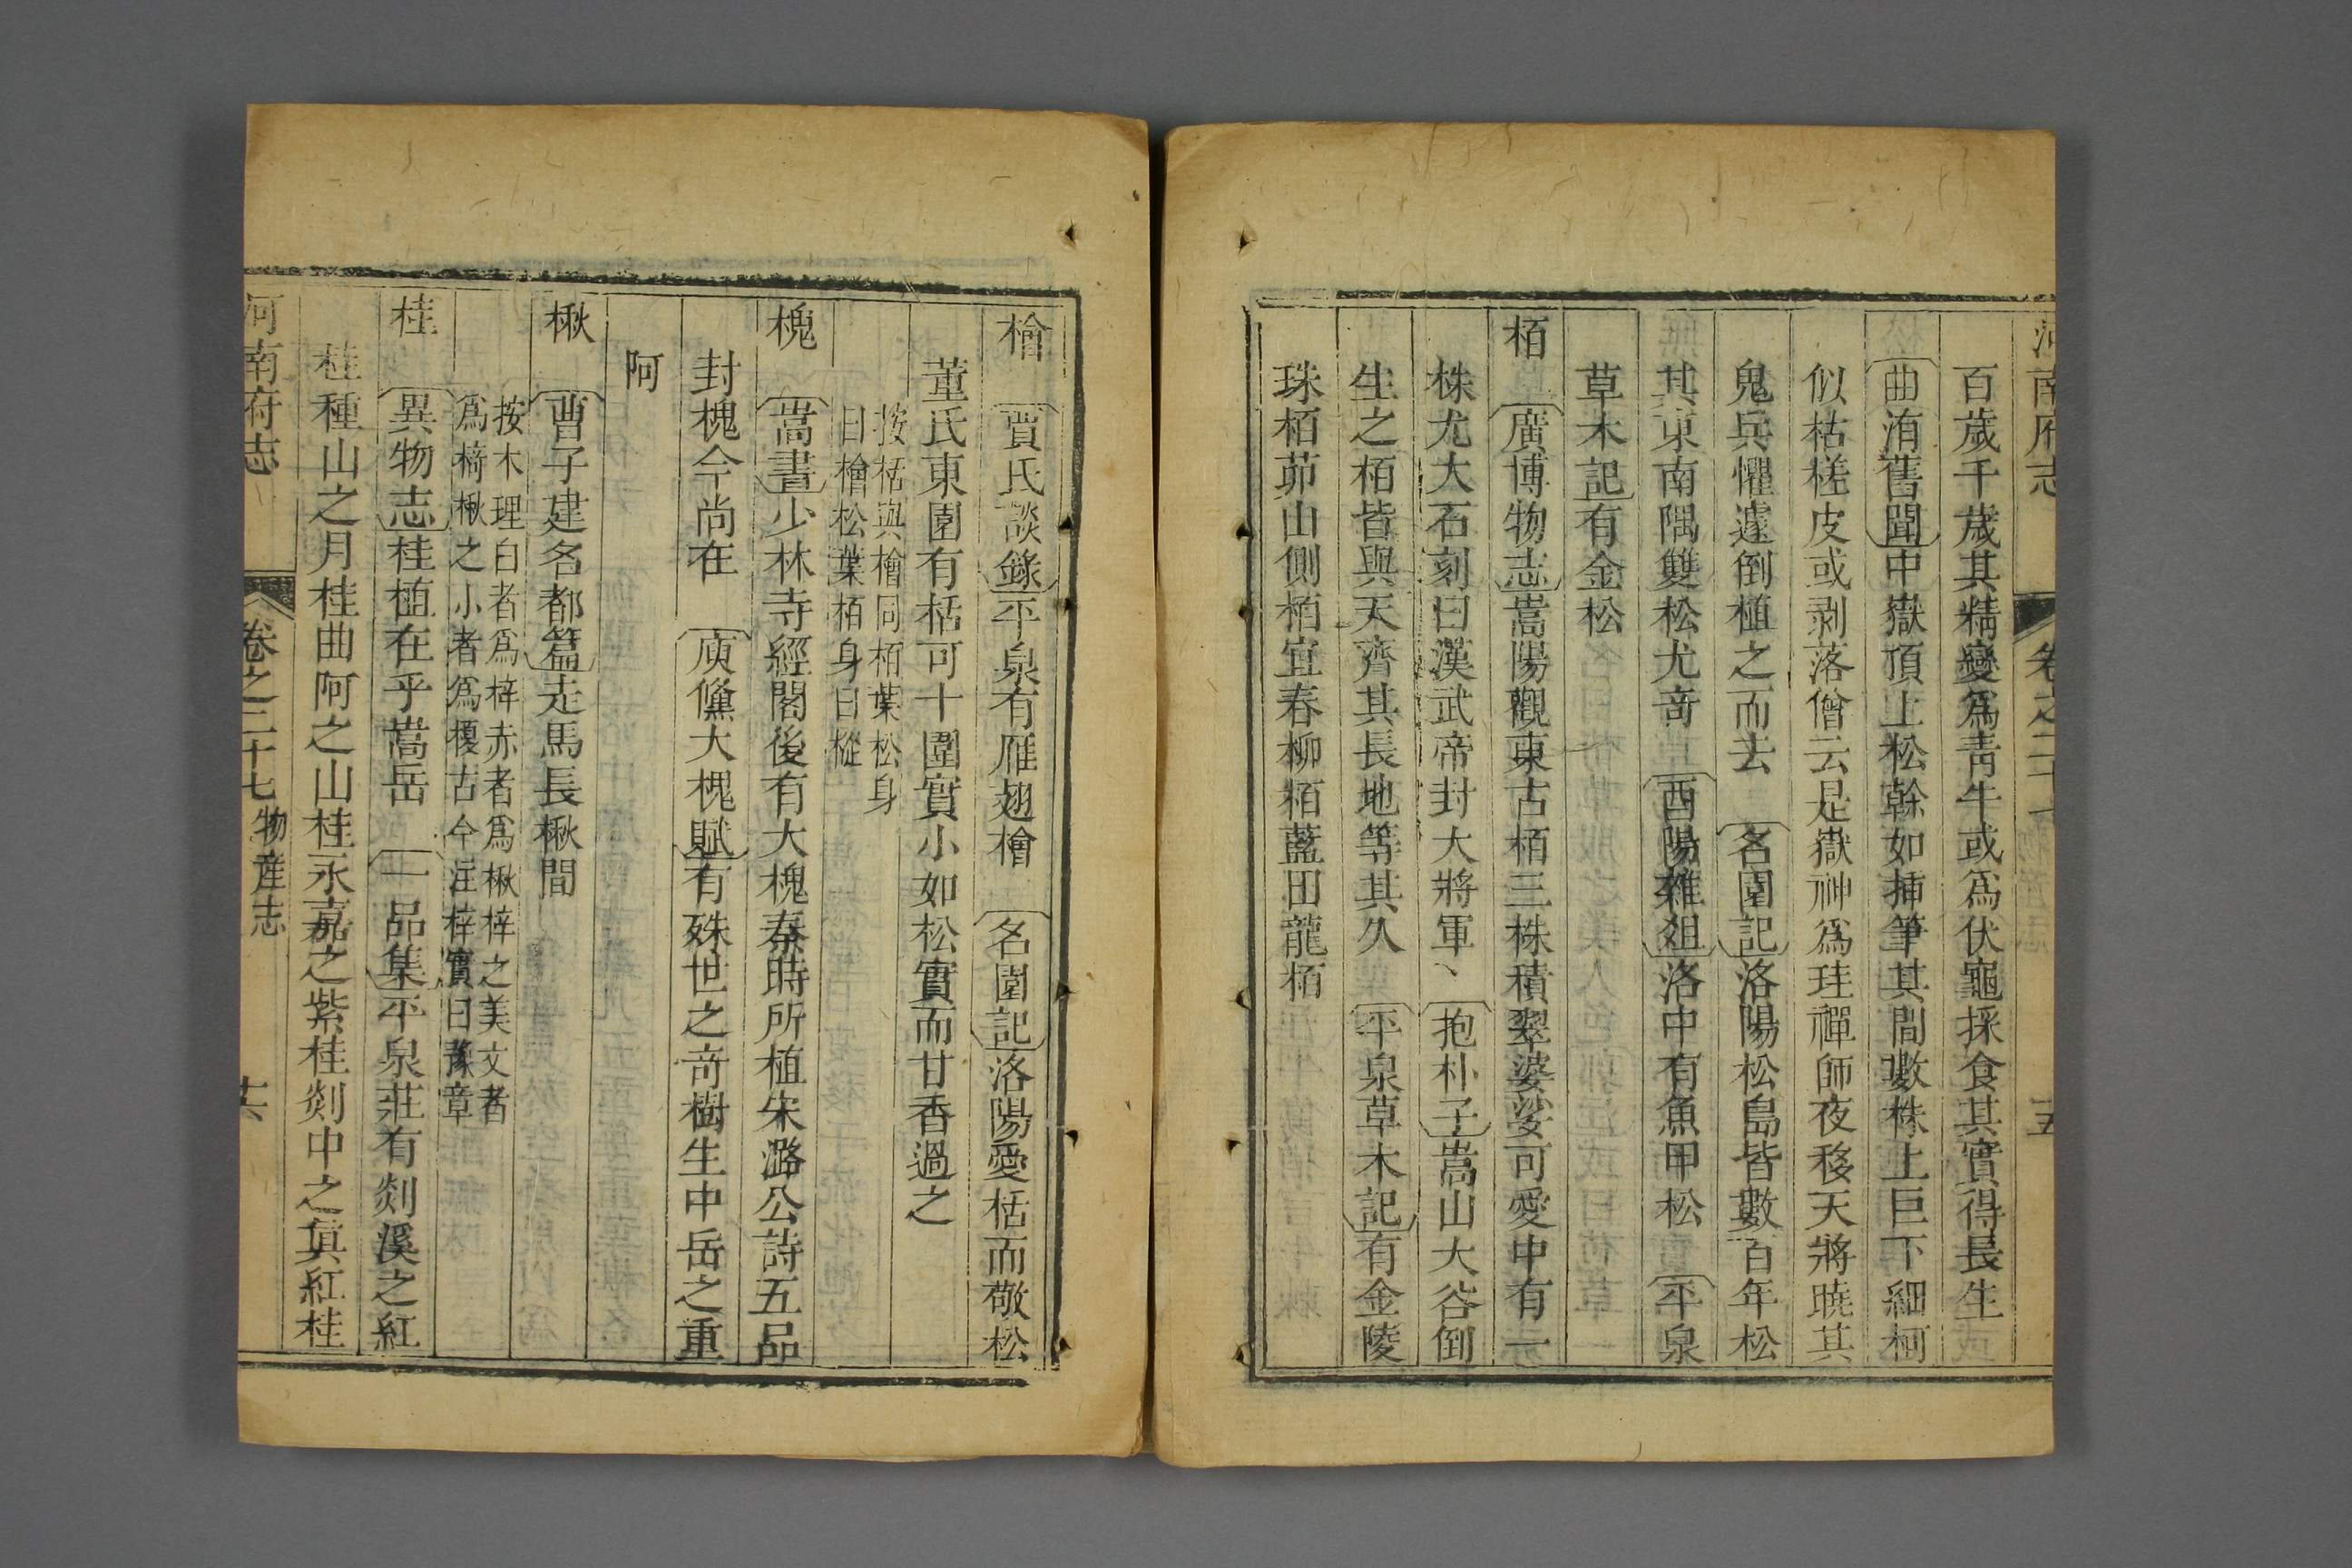 河南府志 卷之二十七 五
百歲千歲其精變爲靑牛或爲伏龜採食其實得長生
曲洧舊聞中嶽頂上松幹如揷筆其間數株上巨下細柯
似枯槎皮或剥落僧云是嶽神爲珪禪師夜移天將曉其
鬼兵懼遽倒植之而去 名園記洛陽松島皆數百年松
其東南隅雙松尤竒 酉陽雜俎洛中有魚甲松 平泉
草木記有金松
栢 廣博物志嵩陽觀東古栢三株積翠婆娑可愛中有一
株尤大石刻曰漢武帝封大將軍、 抱朴子嵩山大谷倒
生之栢皆與天齊其長地等其久 平泉草木記有金陵
珠栢茆山側栢宜春柳栢藍田龍栢
檜 賈氏談錄平泉有雁翅檜 名園記洛陽愛栝而敬松
董氏東園有栝可十圍實小如松實而甘香過之
按栝與檜同栢葉松身
曰檜松葉栢身曰樅
槐 嵩書少林寺經閣後有大槐秦時所植宋潞公詩五品
封槐今尚在 庾儵大槐賦有殊世之竒樹生中岳之重
阿
楸 曹子建名都篇走馬長楸間
按木理白者爲梓赤者爲楸梓之美文者
爲椅楸之小者爲榎古今注梓實曰豫章
桂 異物志桂植在乎嵩岳 一品集平泉莊有剡溪之紅
桂種山之月桂曲阿之山桂永嘉之紫桂剡中之眞紅桂
河南府志 卷之二十七 物産志 十六